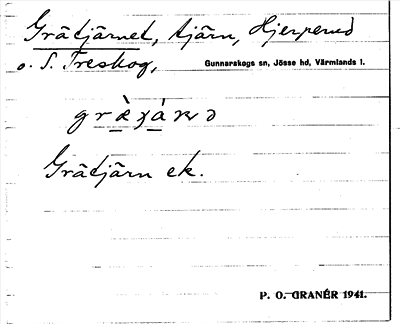 Grätjärnet, tjärn, Hjerperud
o. S. Treskog,
Gunnarskogs sn, Jösse hd, Värmlands l.
Grätjärn ek.
P. O. GRANÉR 1941.